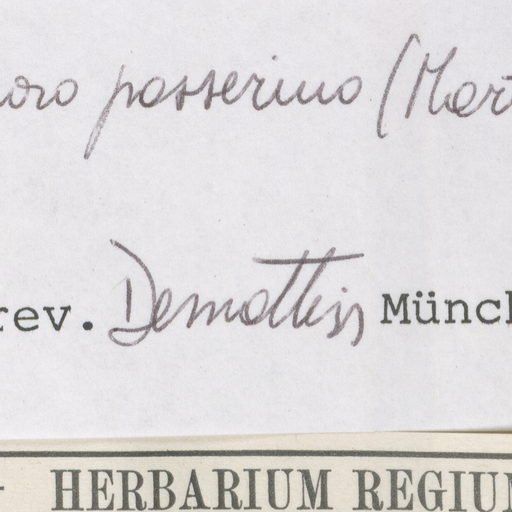 passerino (Mart
rev. Demattiss Münch
HERBARIUM REGIUM